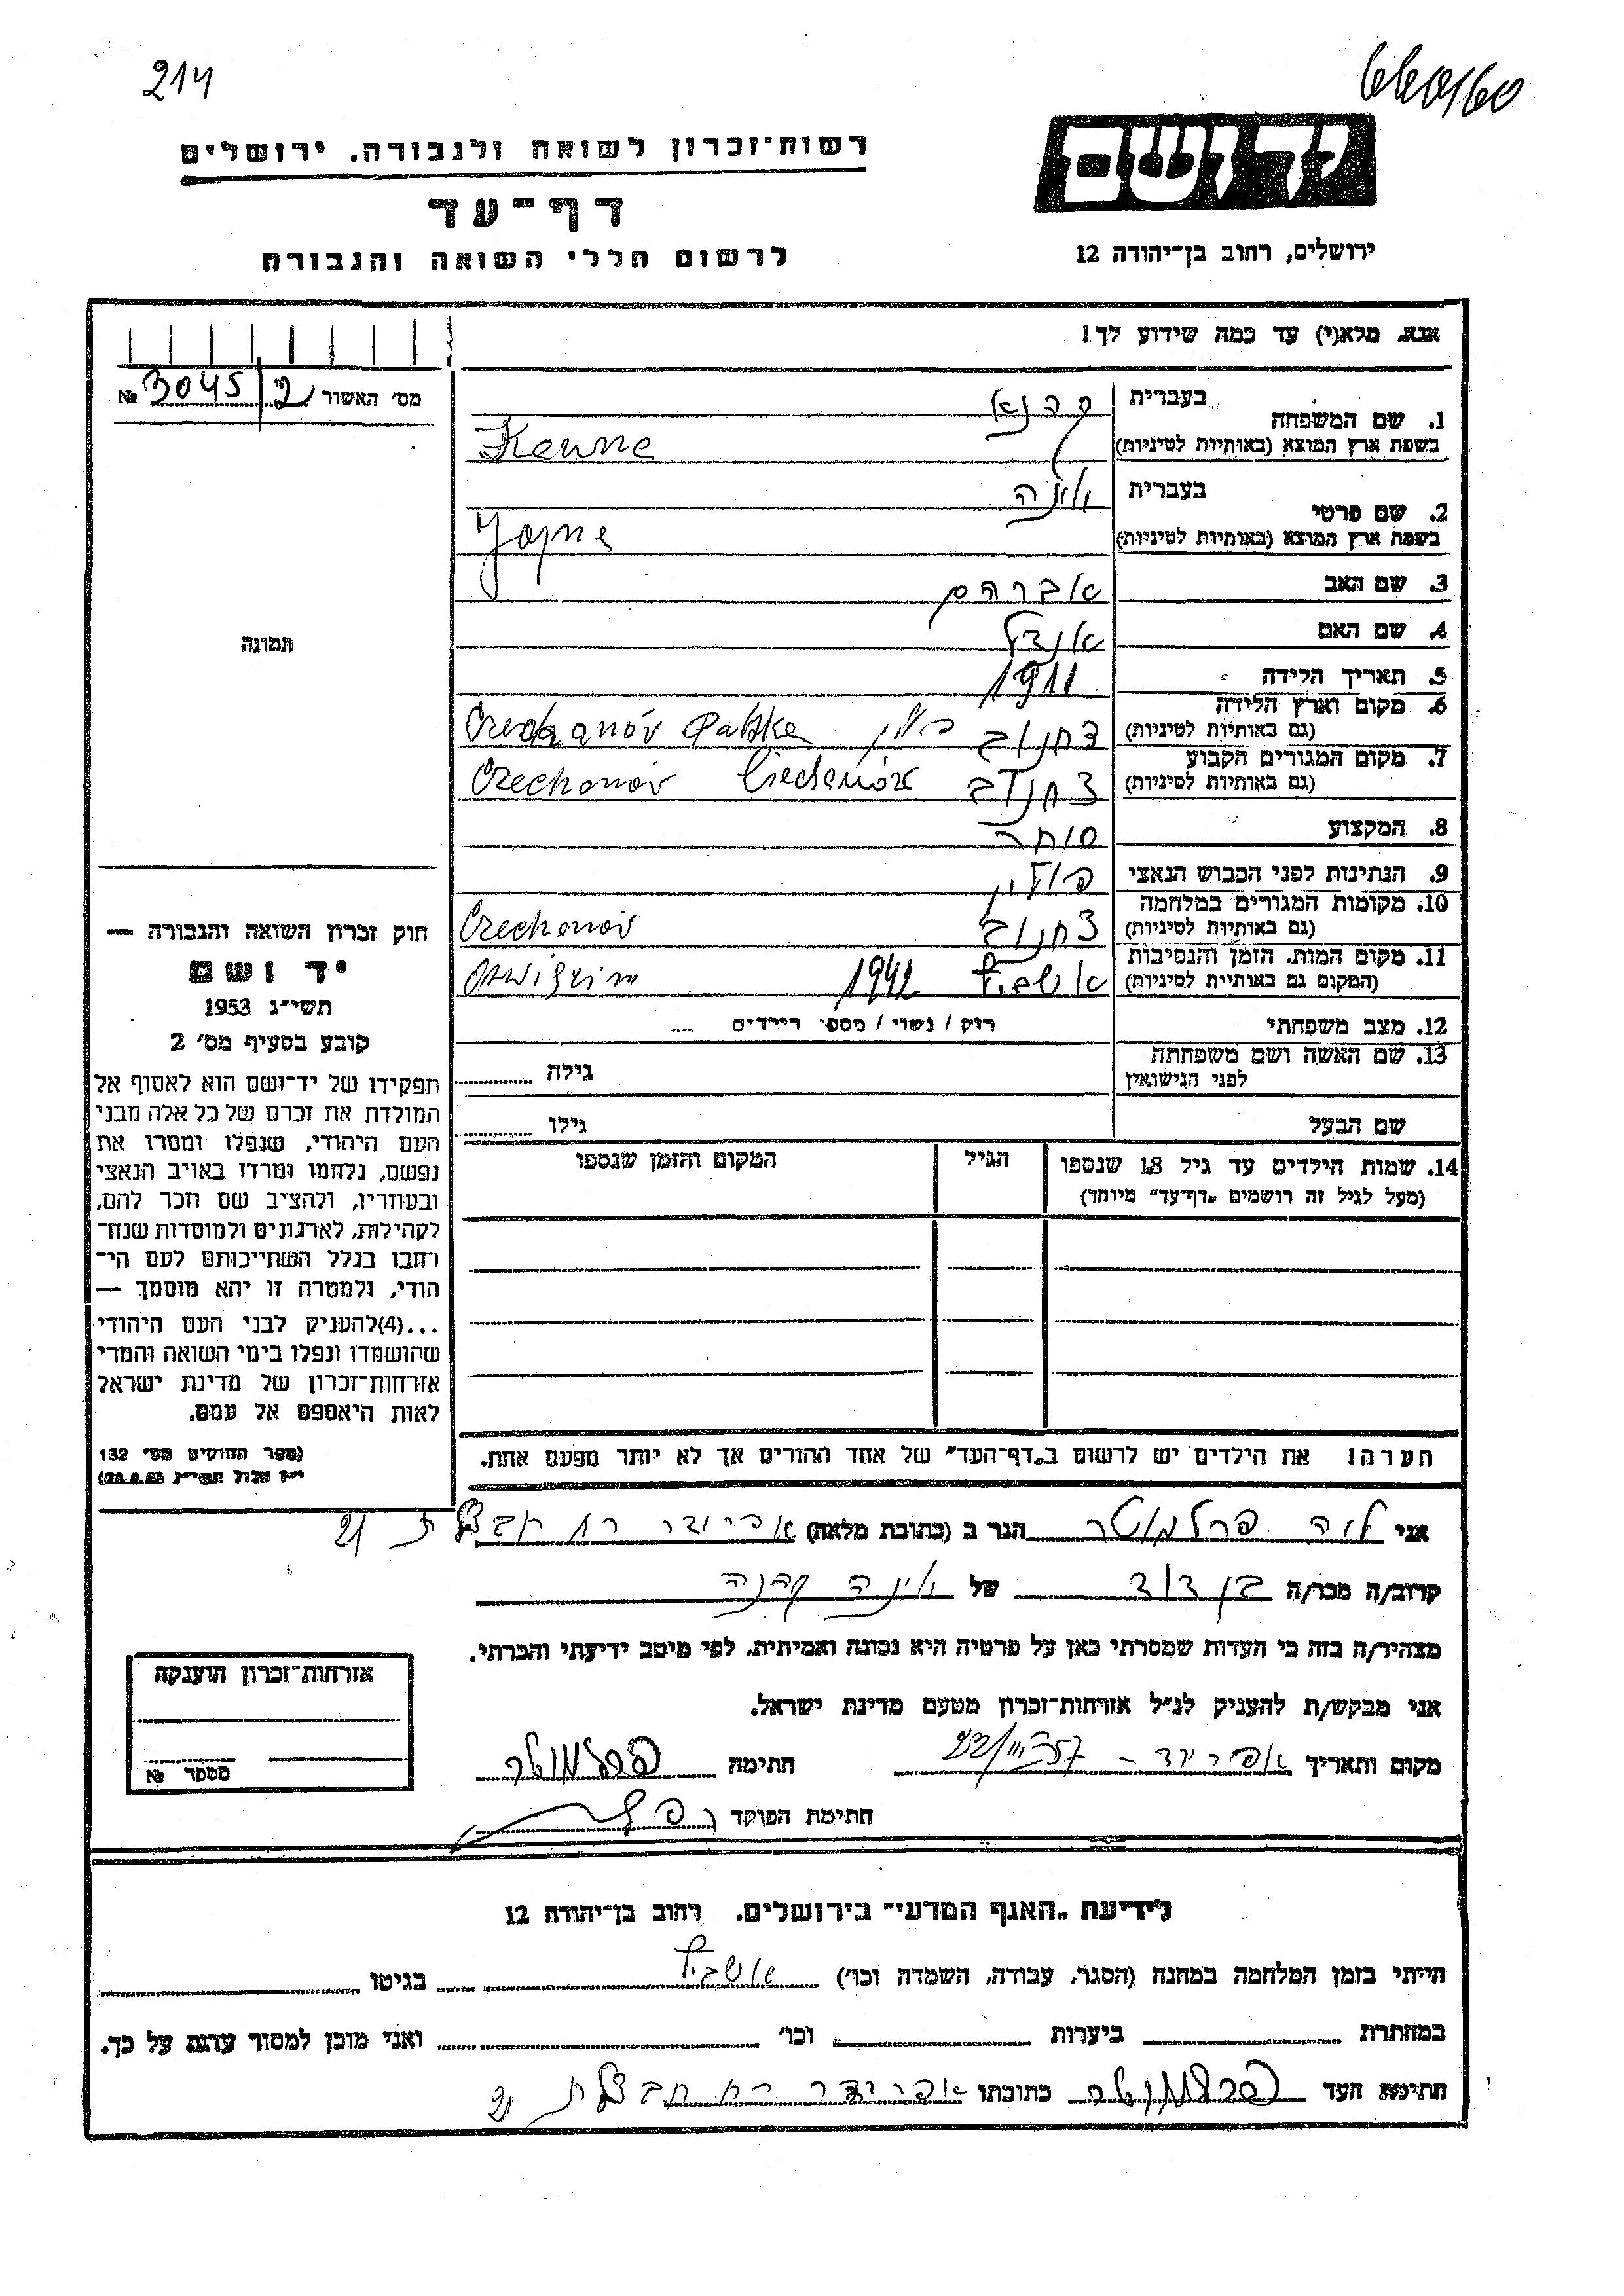 214
660/60
יד ושם
רשות־זכרון לשואה ולגבורה, ירושלים
דף־עד
לרשום חללי השואה והגבורה
ירושלים, רחוב בן־יהודה 12
אנא, מלא(י) עד כמה שידוע לך!
מס׳ האשור 3045/2 №
1. שם המשפחה
בעברית קהנא
בשפת ארץ המוצא (באותיות לטיניות)
2. שם פרטי
בעברית יונה
בשפת ארץ המוצא (באותיות לטיניות) Yojne
3. שם האב אברהם
4. שם האם
5. תאריך הלידה 1911
6. מקום וארץ הלידה
(גם באותיות לטיניות) צחנוב פולין
7. מקום המגורים הקבוע
(גם באותיות לטיניות) צחנוב Czechonów
8. המקצוע סוחר
9. הנתינות לפני הכבוש הנאצי פולין
10. מקומות המגורים במלחמה
(גם באותיות לטיניות) צחנוב Czechonów
11. מקום המות, הזמן והנסיבות
(המקום גם באותיות לטיניות) אושביץ 1942
12. מצב משפחתי רוק / נשוי / מספר הילדים ....
13. שם האשה ושם משפחתה
לפני הנישואין
גילה
שם הבעל
גילו
14. שמות הילדים עד גיל 18 שנספו
(מעל לגיל זה רושמים „דף־עד״ מיוחד)
הגיל
המקום והזמן שנספו
הערה! את הילדים יש לרשום ב„דף־העד״ של אחד ההורים אך לא יותר מפעם אחת.
תמונה
חוק זכרון השואה והגבורה —
יד ושם
תשי״ג 1953
קובע בסעיף מס׳ 2
תפקידו של יד־ושם הוא לאסוף אל
המולדת את זכרם של כל אלה מבני
העם היהודי, שנפלו ומסרו את
נפשם, נלחמו ומרדו באויב הנאצי
ובעוזריו, ולהציב שם וזכר להם,
לקהילות, לארגונים ולמוסדות שנח־
רבו בגלל השתייכותם לעם הי־
הודי, ולמטרה זו יהא מוסמך —
...(4)להעניק לבני העם היהודי
שהושמדו ונפלו בימי השואה והמרי
אזרחות־זכרון של מדינת ישראל
לאות היאספם אל עמם.
(ספר החוקים מס׳ 132
אני פרלמוטר הגר ב (כתובת מלאה) אפרידר רח חבצלת 21
קרוב/ה מכר/ה בן דוד של יונה קהנה
מצהיר/ה בזה כי העדות שמסרתי כאן על פרטיה היא נכונה ואמיתית, לפי מיטב ידיעתי והכרתי.
אני מבקש/ת להעניק לנ״ל אזרחות־זכרון מטעם מדינת ישראל.
מקום ותאריך אפרידר – 22/III 57 חתימה פרלמוטר
חתימת הפוקד
אזרחות־זכרון הוענקה
מספר №
לידיעת „האגף המדעי״ בירושלים, רחוב בן־יהודה 12
הייתי בזמן המלחמה במחנה (הסגר, עבודה, השמדה וכו׳) אושביץ בגיטו
במחתרת ביערות וכו׳ ואני מוכן למסור עדות על כך.
חתימת העד פרלמוטר כתובתו אפרידר רח חבצלת 21